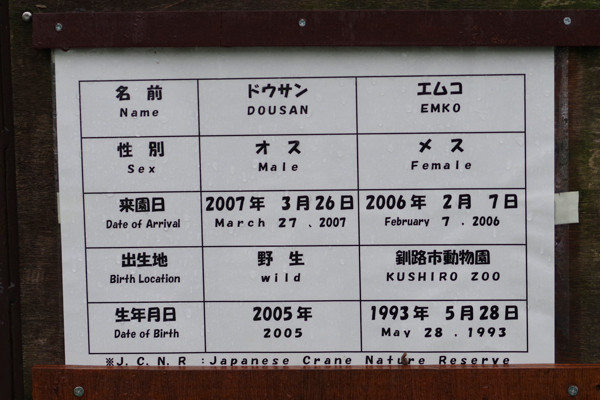 名 前 ドウサン エムコ
Name DOUSAN EMKO
性 別 オ ス メ ス
Sex Male Female
来園日 2007年 3月26日 2006年 2月 7日
Date of Arrival March 27 、2007 February 7 . 2006
出生地 野 生 釧路市動物園
Birth Location wild KUSHIRO ZOO
生年月日 2005年 1993年 5月28日
Date of Birth 2005 May 28 . 1993
※J. C. N. R :Japanese Crane Nature Reserve